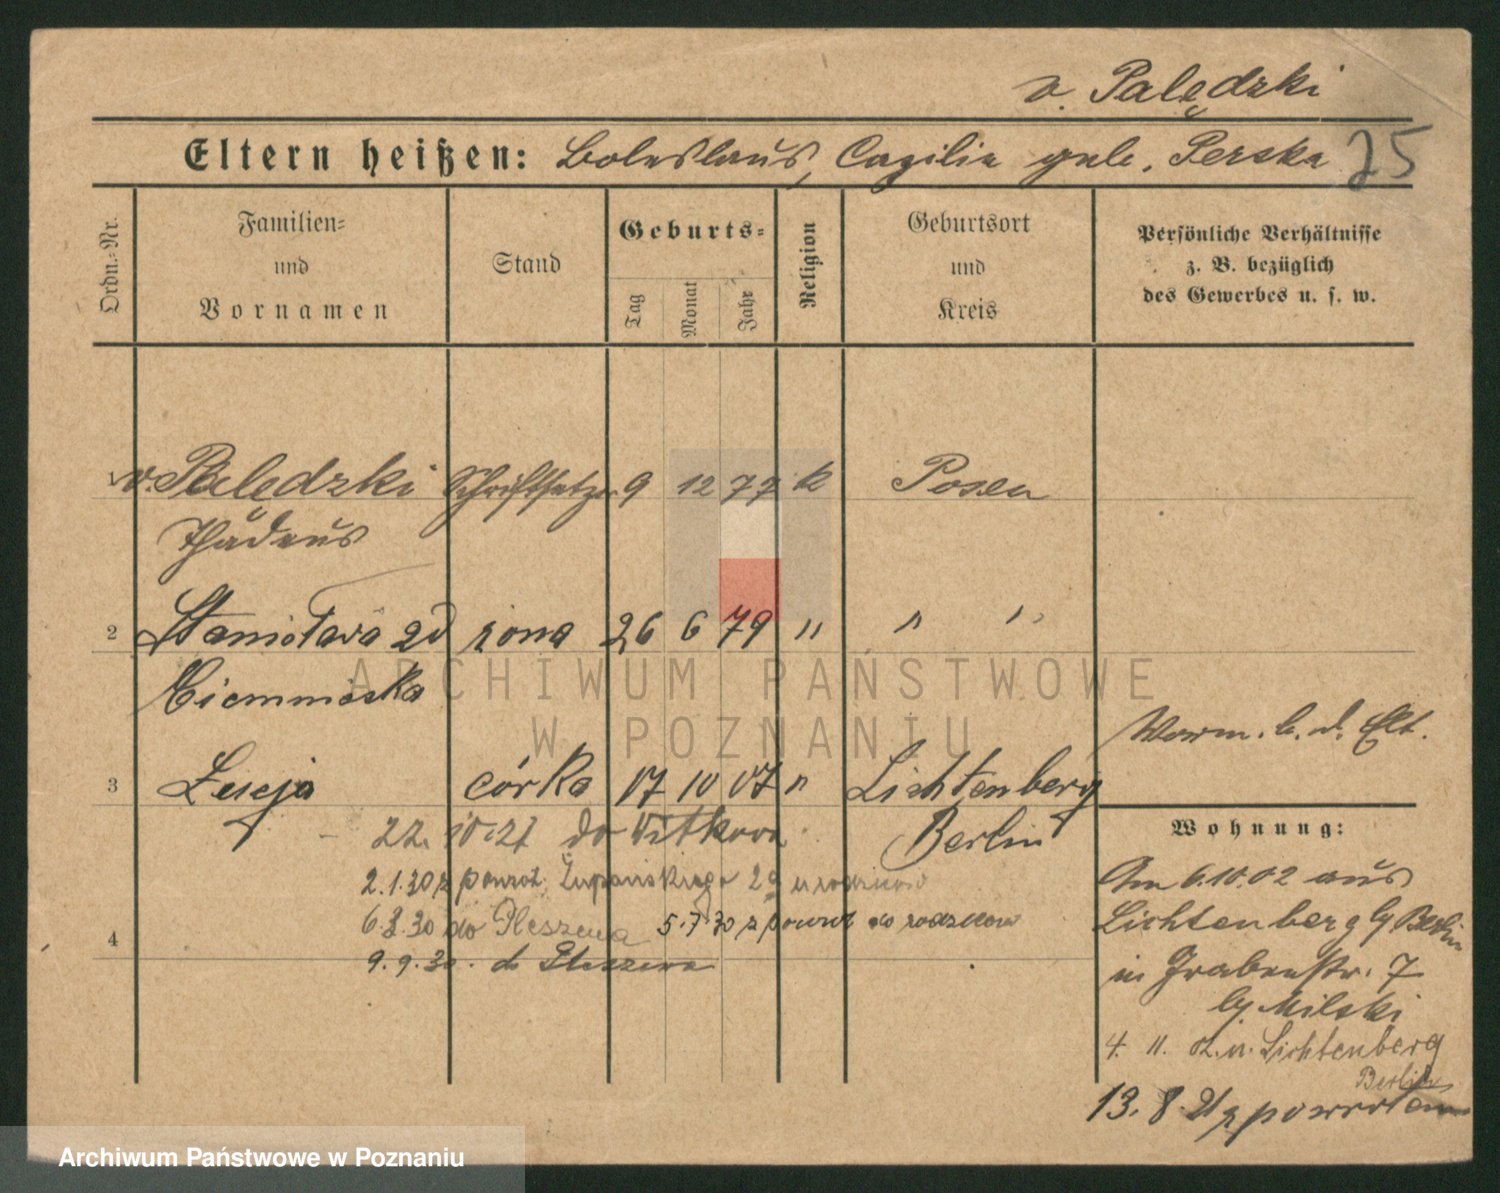 v. Palędzki
Eltern heißen: Boleslaus, Cazilia geb. Perska 25
Ordn.-Nr.
Familien-
und
Vornamen
Stand
Geburts-
Tag
Monat
Jahr
Religion
Geburtsort
und
Kreis
Persönliche Verhältnisse
z. B. bezüglich
des Gewerbes u. s. w.
1 v. Palędzki Schriftsetzer 9 12 77 k Posen
Thadeus
2 Stanisława zd żona 26 6 79 " " "
Ciemnioska
3 Łucja córka 17 10 07 " Lichtenberg
Berlin
22. 10. 27 do Witkowa
2.1.30 z powrot. Żupańskiego 29 u rodziców
6.3.30 do Pleszewa 5.7.30 z powrot do rodziców
4
9.9.30. do Pleszewa
Worm. b. d. Elt.
Wohnung:
Am 6.10.02 aus
Lichtenberg b/ Berlin
in Grabenstr. 7
by Milski
4. 11. 02. n. Lichtenberg
Berlin
13. 8. 21 z powrotem
ARCHIWUM PAŃSTWOWE
W POZNANIU
Archiwum Państwowe w Poznaniu